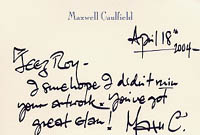 Maxwell Caulfield
April 18th
2004-
Jeez Roy-
I sure hope I didn't ruin
your artwork. You've got
great elan!
Max C.